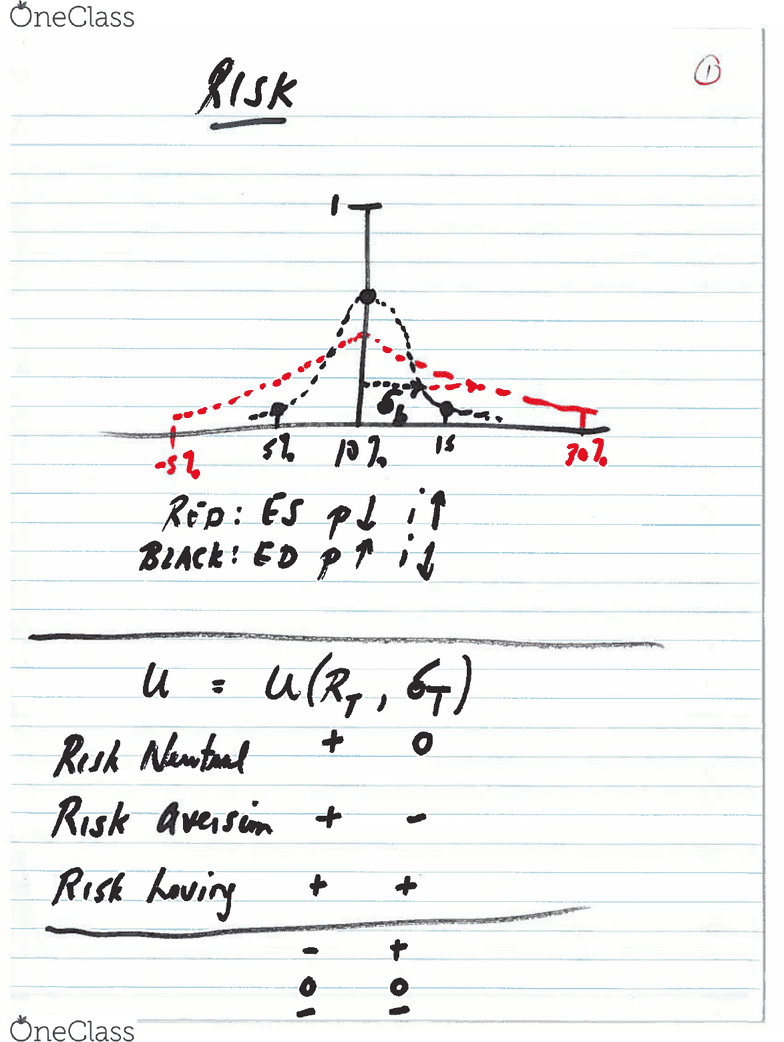 OneClass
1
RISK
1
σb
-5% 5% 10% 15 30%
RED: ES p↓ i↑
BLACK: ED p↑ i↓
U = U(RT, σT)
Risk Neutral + 0
Risk Aversion + -
Risk Loving + +
- +
0 0
- -
OneClass